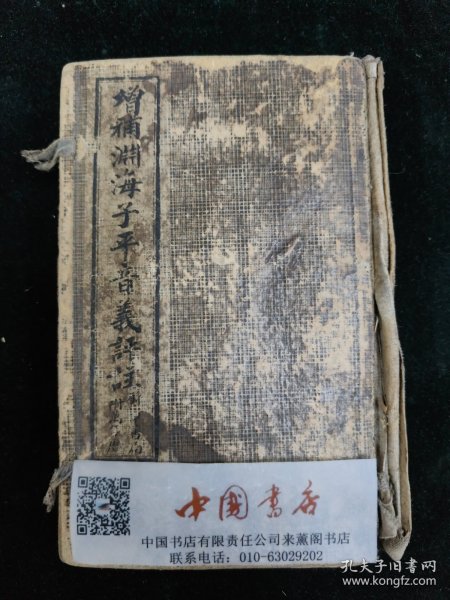 增補淵海子平音義評註
中國書店
中国书店有限责任公司来薰阁书店
联系电话：010-63029202
孔夫子旧书网
www.kongfz.com